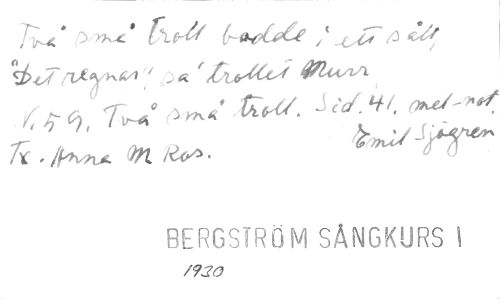 Två små troll bodde i ett såll,
"Det regnar", sa trollet Murr
N. 59. Två små troll. Sid. 41. mel-not.
Emil Sjögren
Tx. Anna M Ros.
BERGSTRÖM SÅNGKURS I
1930